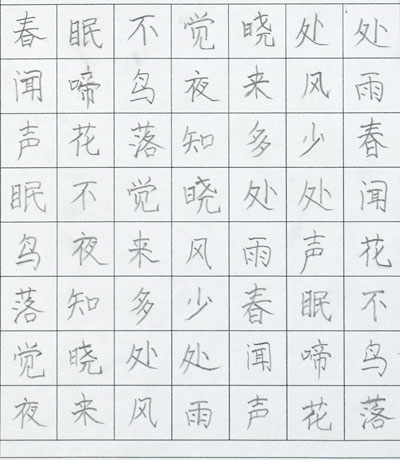 春眠不觉晓处处
闻啼鸟夜来风雨
声花落知多少春
眠不觉晓处处闻
鸟夜来风雨声花
落知多少春眠不
觉晓处处闻啼鸟
夜来风雨声花落